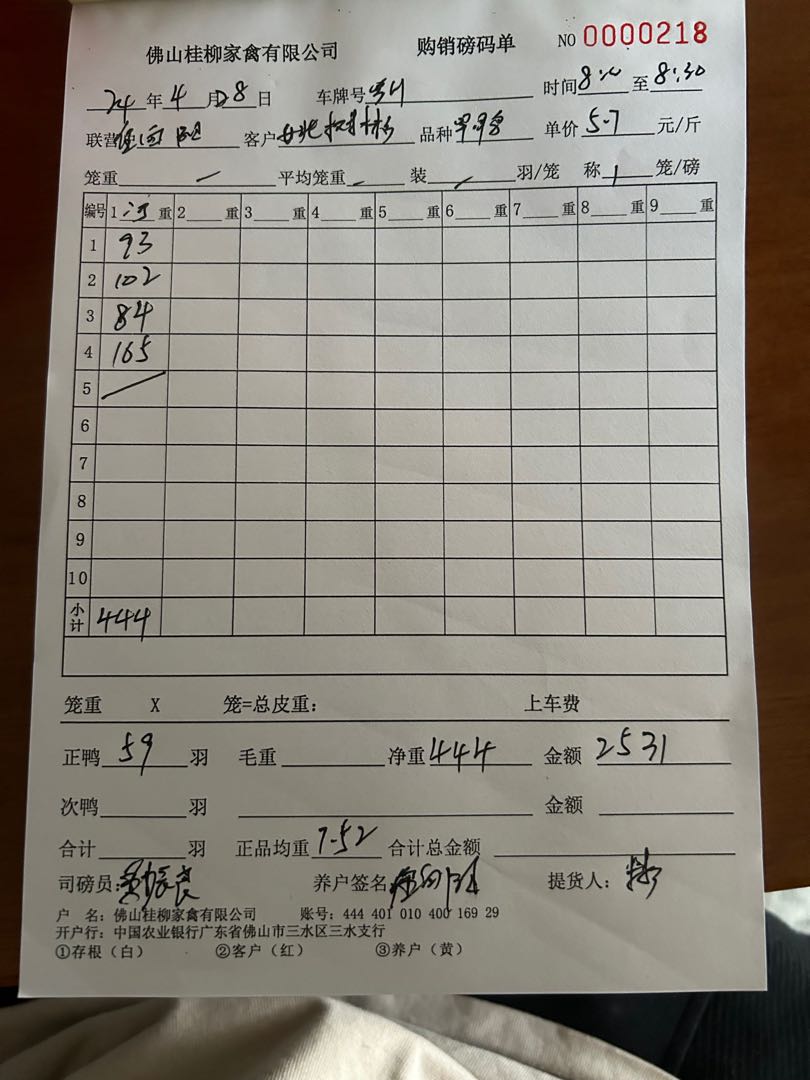 佛山桂柳家禽有限公司 购销磅码单 NO 0000218
24 年 4 月 28 日 车牌号 时间 8:20 至 8:30
联营 客户 品种 单价 5.7 元/斤
笼重 — 平均笼重 — 装 羽/笼 称 1 笼/磅
编号 1 河 重 2 重 3 重 4 重 5 重 6 重 7 重 8 重 9 重
1 93
2 102
3 84
4 165
5
6
7
8
9
10
小计 444
笼重 X 笼=总皮重: 上车费
正鸭 59 羽 毛重 净重 444 金额 2531
次鸭 羽 金额
合计 羽 正品均重 7.52 合计总金额
司磅员: 养户签名 提货人:
户 名: 佛山桂柳家禽有限公司 账号: 444 401 010 400 169 29
开户行: 中国农业银行广东省佛山市三水区三水支行
①存根(白) ②客户(红) ③养户(黄)